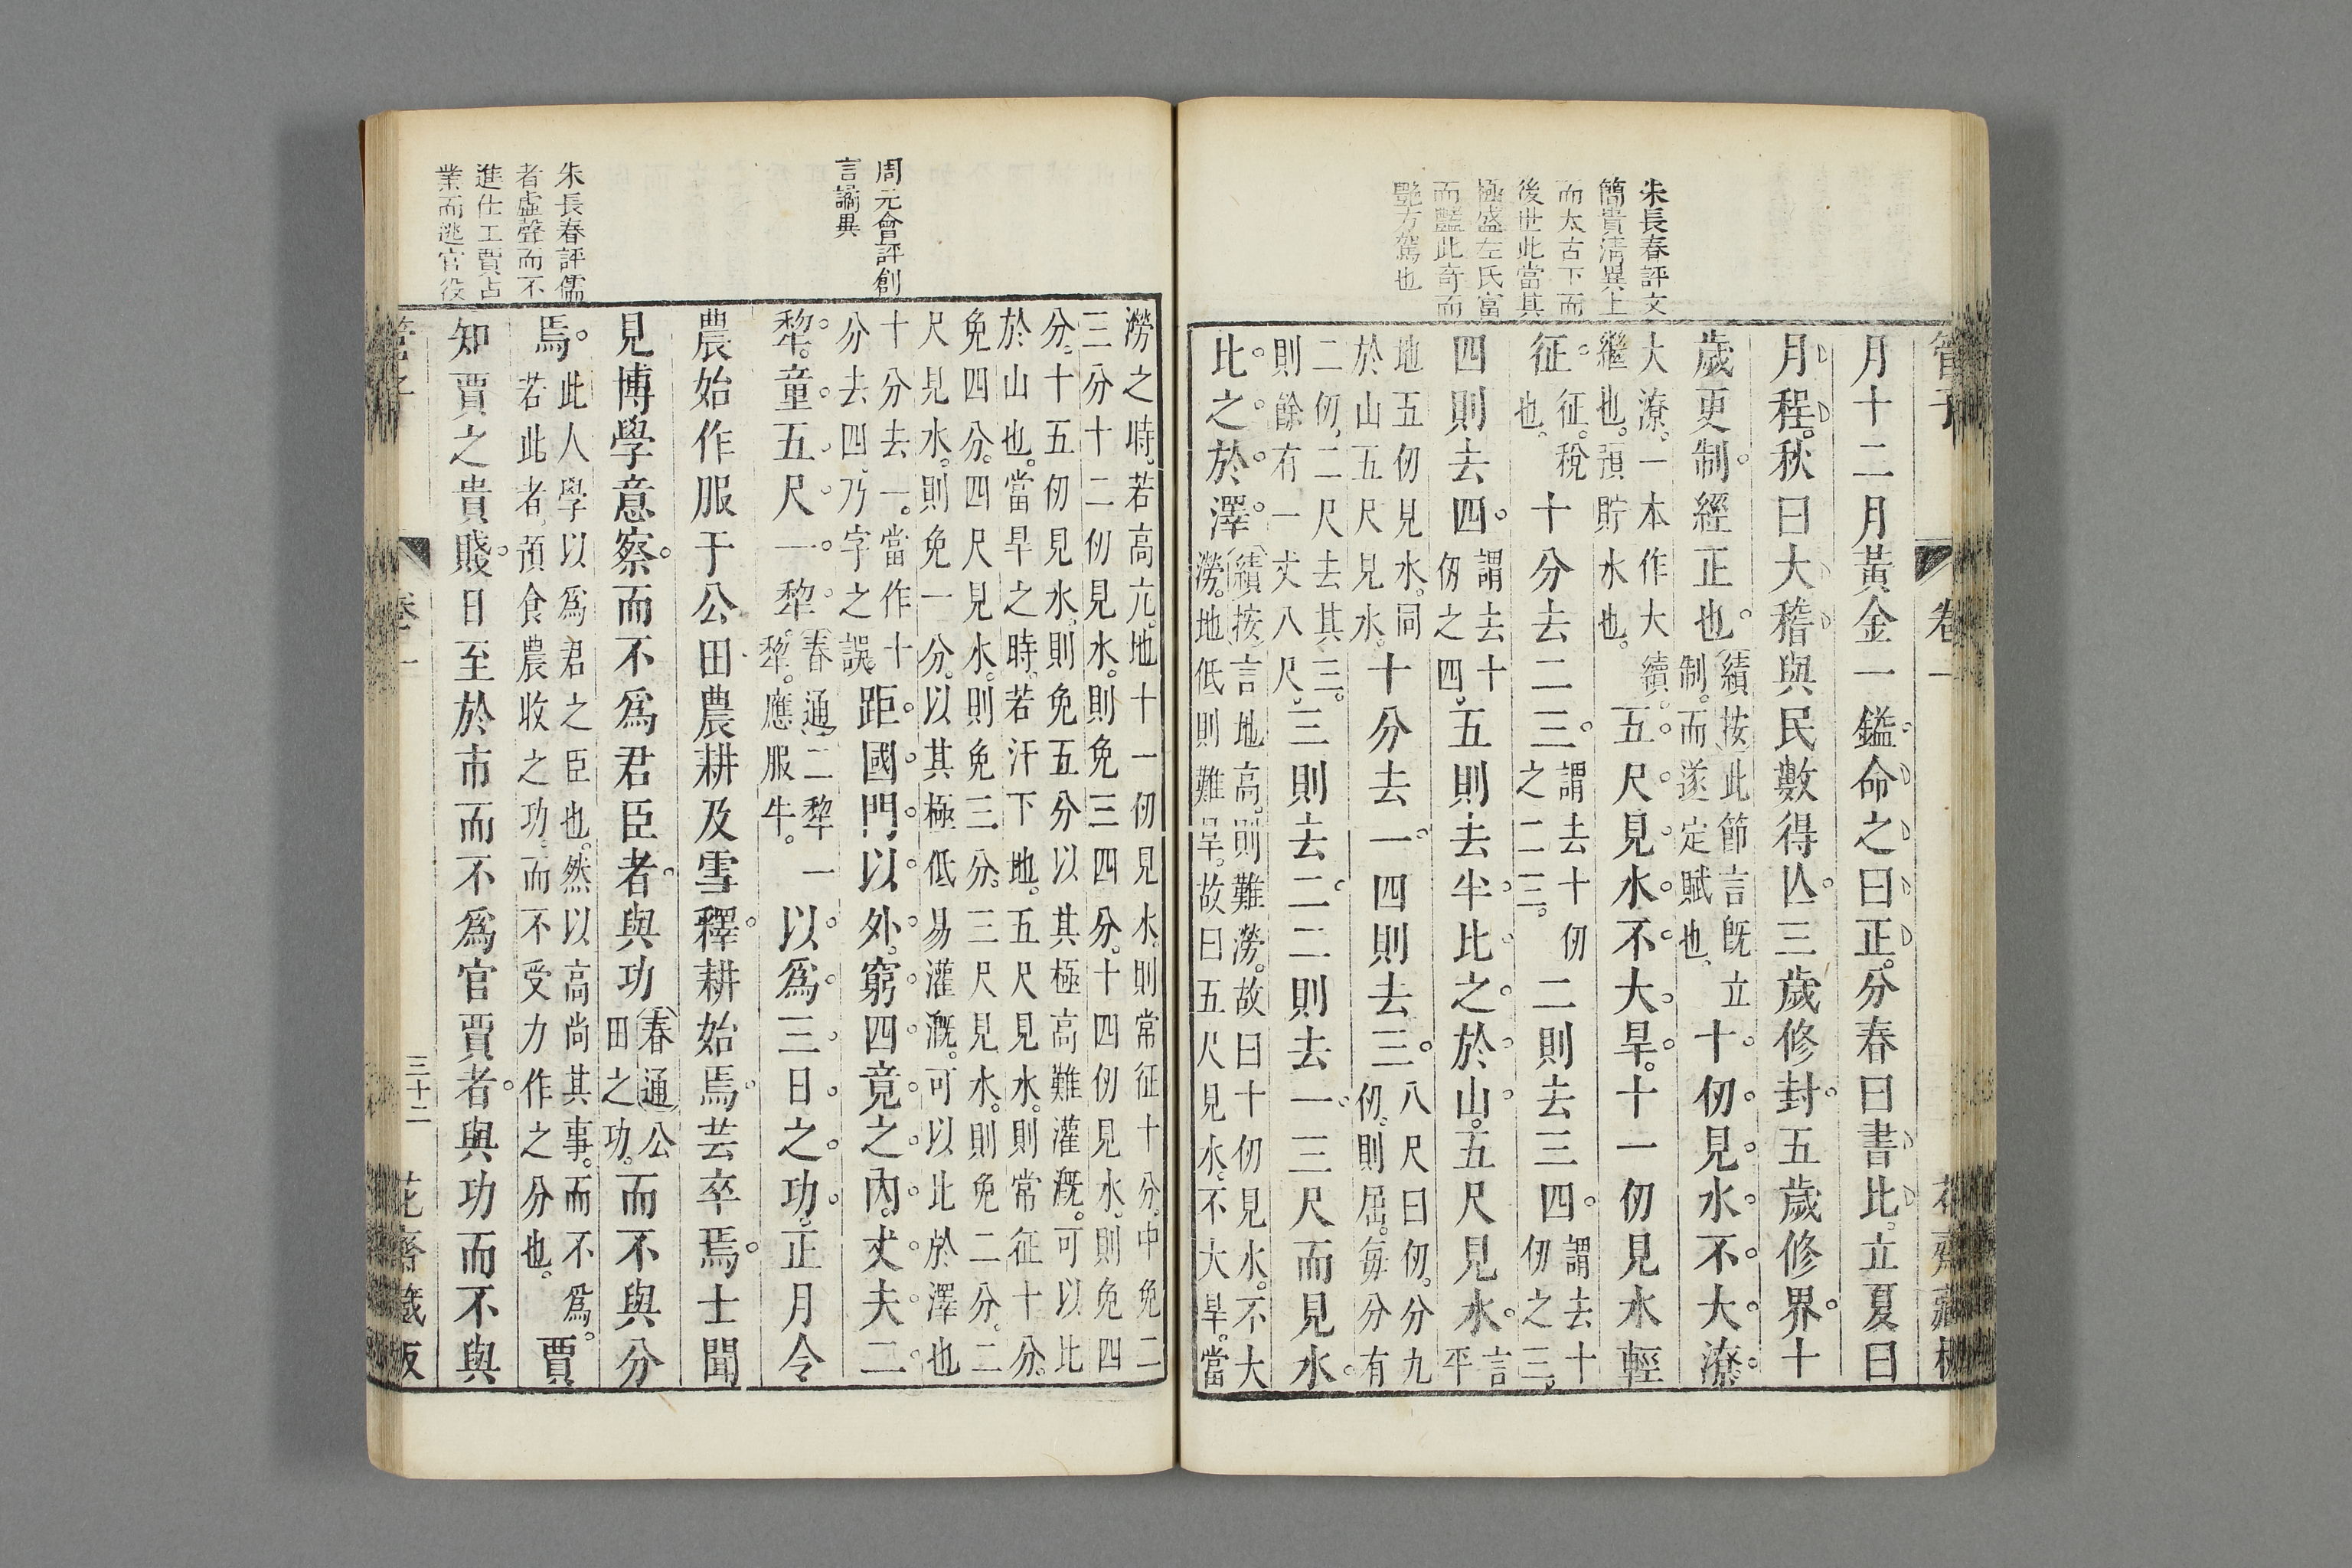 朱長春評文
簡貴淸異上
而太古下而
後世此當其
極盛左氏富
而豔此奇而
艷方駕也
管子
卷一
花齋藏板
月十二月黃金一鎰命之曰正分春曰書比立夏曰
月程秋曰大稽與民數得亾三歲修封五歲修界十
歲更制經正也續按此節言旣立
制而遂定賦也
十仞見水不大潦
大潦一本作大
繼也預貯水也
續
五尺見水不大旱十一仞見水輕
征征稅
也
十分去二三謂去十仞
之二三
二則去三四謂去十
仞之三
四則去四謂去十
仞之四
五則去半比之於山五尺見水言
平
地五仞見水同
於山五尺見水
十分去一四則去三八尺曰仞分九
仞則屈每分有
二仞二尺去其三
則餘有一丈八尺
三則去二二則去一三尺而見水
比之於澤續按言地高則難澇故曰十仞見水不大
澇地低則難旱故曰五尺見水不大旱當
周元會評創
言譎異
朱長春評儒
者虛聲而不
進仕工賈占
業而逃官役
澇之時若高亢地十一仞見水則常征十分中免二
三分十二仞見水則免三四分十四仞見水則免四
分十五仞見水則免五分以其極高難灌漑可以比
於山也當旱之時若汙下地五尺見水則常征十分
免四分四尺見水則免三分三尺見水則免二分二
尺見水則免一分以其極低易灌漑可以比於澤也
十分去一當作十
分去四乃字之誤
距國門以外窮四竟之內丈夫二
犂童五尺一犂春通二犂一
犂應服牛
以爲三日之功正月令
農始作服于公田農耕及雪釋耕始焉芸卒焉士聞
見博學意察而不爲君臣者與功春通公
田之功
而不與分
焉此人學以爲君之臣也然以高尚其事而不爲
若此者預食農收之功而不受力作之分也
賈
知賈之貴賤日至於市而不爲官賈者與功而不與
管子
卷一
三十二
花齋藏板